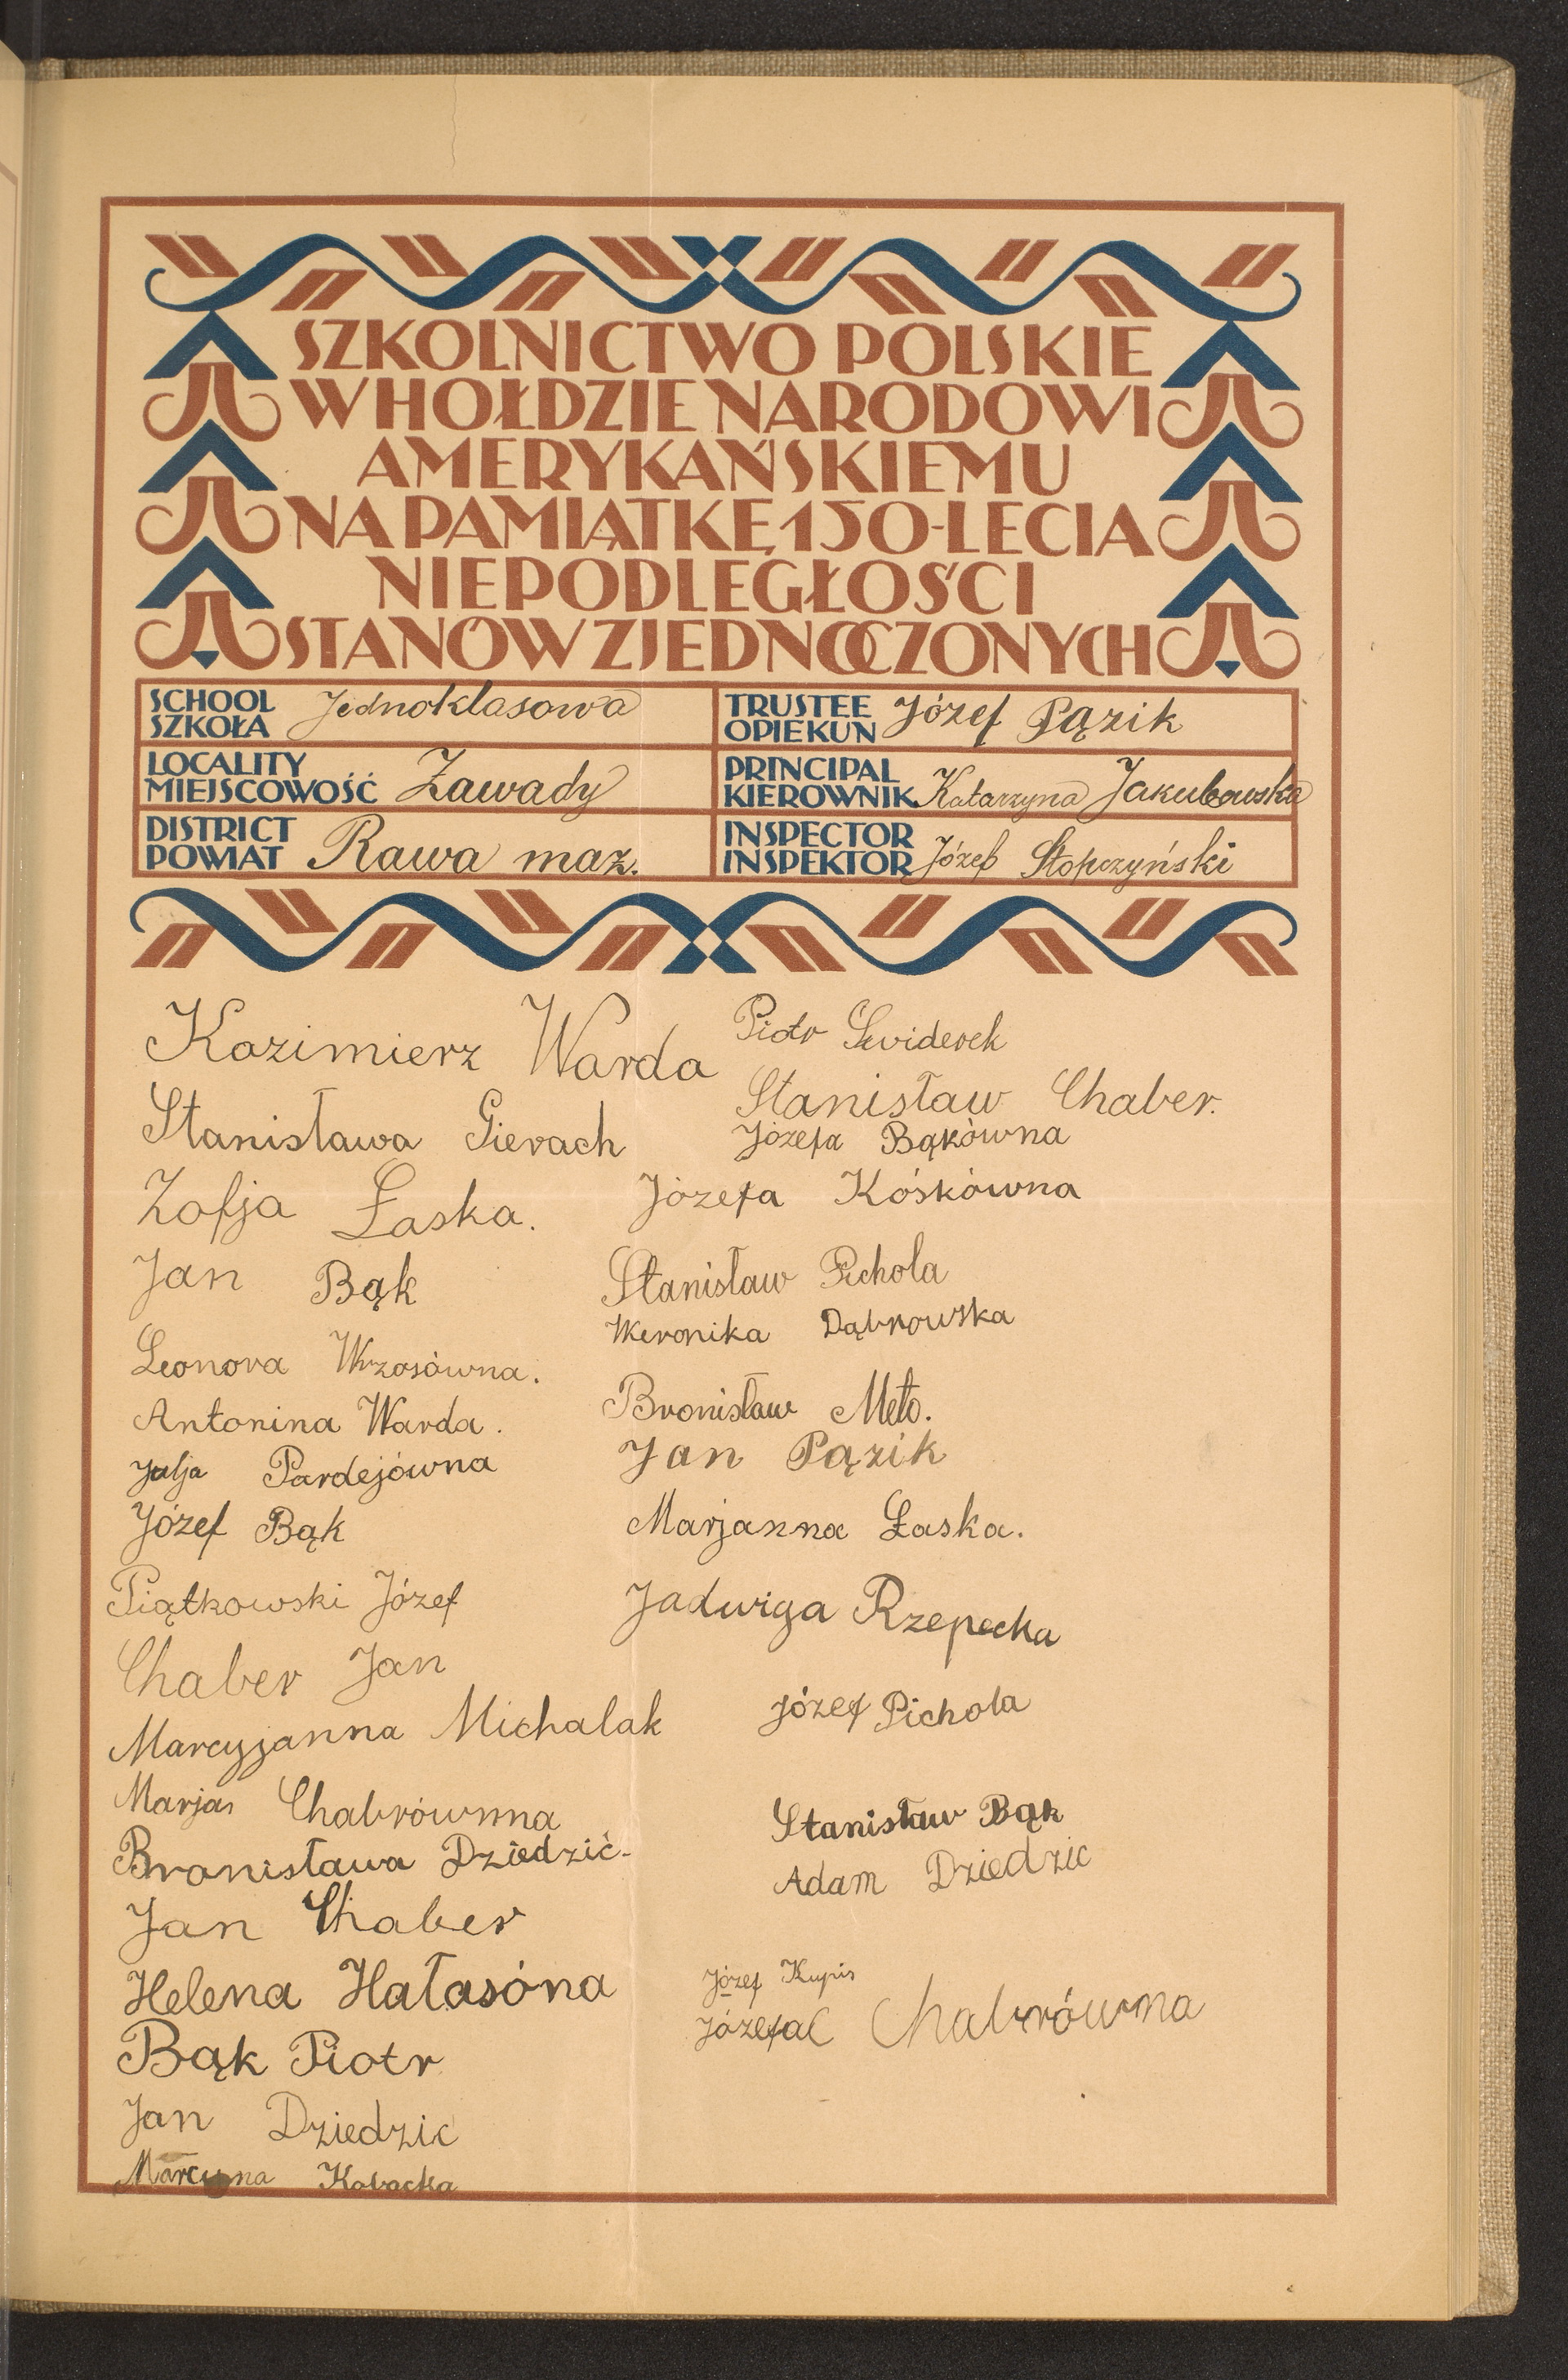 SZKOLNICTWO POLSKIE
W HOŁDZIE NARODOWI
AMERYKAŃSKIEMU
NA PAMIĄTKĘ 150-LECIA
NIEPODLEGŁOŚCI
STANÓW ZJEDNOCZONYCH
SCHOOL
SZKOŁA Jednoklasowa
TRUSTEE
OPIEKUN Józef Pązik
LOCALITY
MIEJSCOWOŚĆ Zawady
PRINCIPAL
KIEROWNIK Katarzyna Jakubowska
DISTRICT
POWIAT Rawa maz.
INSPECTOR
INSPEKTOR Józef Stopczyński
Kazimierz Warda
Stanisława Gierach
Zofja Łaska.
Jan Bąk
Leonora Wrzosówna.
Antonina Warda.
Julja Pardejówna
Józef Bąk
Piątkowski Józef
Chaber Jan
Marcyjanna Michalak
Marja Chabrównna
Bronisława Dziedzic
Jan Chaber
Helena Hałasóna
Bąk Piotr
Jan Dziedzic
Piotr Swiderek
Stanisław Chaber.
Józefa Bąkówna
Józefa Kóskówna
Stanisław Pichola
Weronika Dąbrowska
Bronisław Meto.
Jan Pązik
Marjanna Łaska.
Jadwiga Rzepecka
Józef Pichola
Stanisław Bąk
Adam Dziedzic
Józef Kupis
Józefa Chabrówna